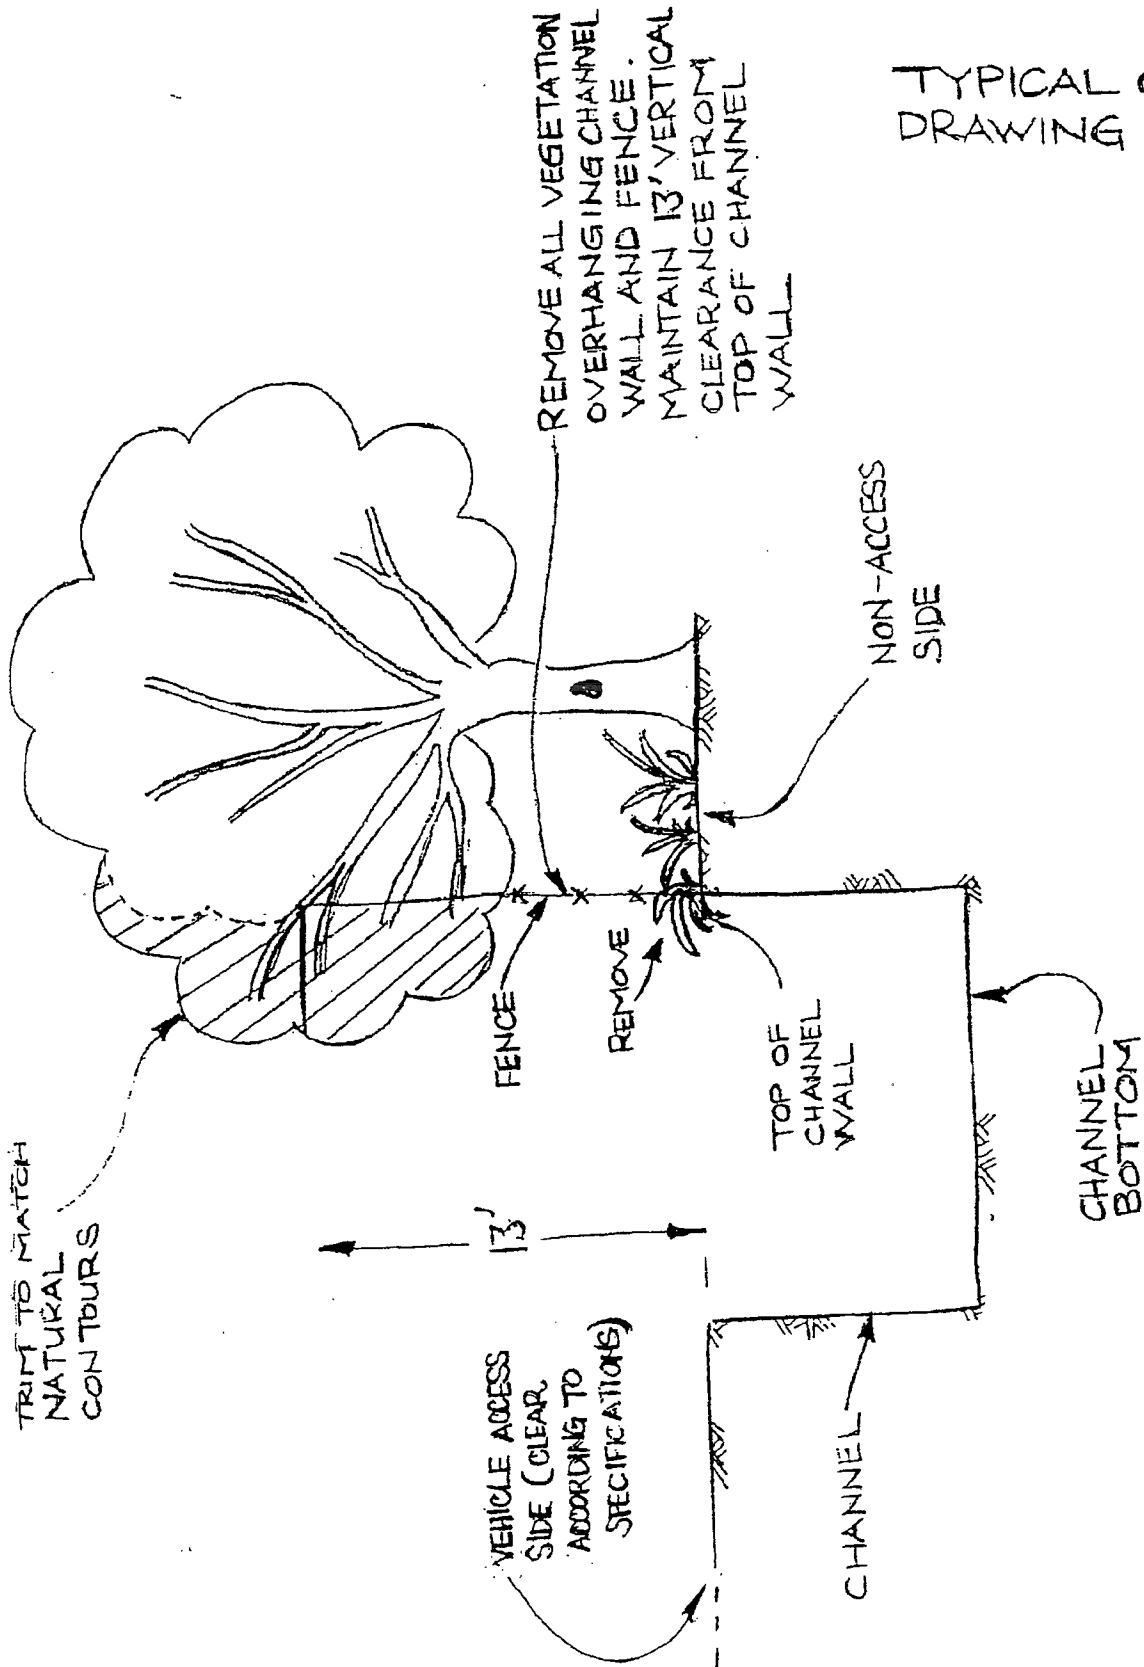 TYPICAL
DRAWING
REMOVE ALL VEGETATION
OVERHANGING CHANNEL
WALL AND FENCE.
MAINTAIN 13' VERTICAL
CLEARANCE FROM
TOP OF CHANNEL
WALL
TRIM TO MATCH
NATURAL
CONTOURS
FENCE
REMOVE
NON-ACCESS
SIDE
TOP OF
CHANNEL
WALL
13'
VEHICLE ACCESS
SIDE (CLEAR
ACCORDING TO
SPECIFICATIONS)
CHANNEL
CHANNEL
BOTTOM